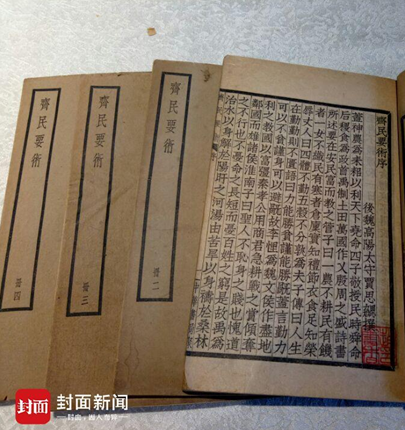 齊民要術序
後魏高陽太守賈思勰撰
蓋神農為耒耜以利天下堯命四子敬授民時舜命
后稷食為政首禹制土田萬國作乂殷周之盛詩書
所述要在安民富而教之管子曰一農不耕民有飢
者一女不織民有寒者倉廩實知禮節衣食足知榮
辱丈人曰四體不勤五穀不分孰為夫子傳曰人生
在勤勤則不匱語曰力能勝貧謹能勝禍蓋言勤力
可以不貧謹身可以避禍故李悝為魏文侯作盡地
利之教國以富彊秦孝公用商君急耕戰之賞傾奪
鄰國而雄諸侯淮南子曰聖人不恥身之賤也愧道
之不行也不憂命之長短而憂百姓之窮是故禹為
治水以身解於陽盱之河湯由苦旱以身禱於桑林
齊民要術
冊二
齊民要術
冊三
齊民要術
冊四
封面
封面新闻